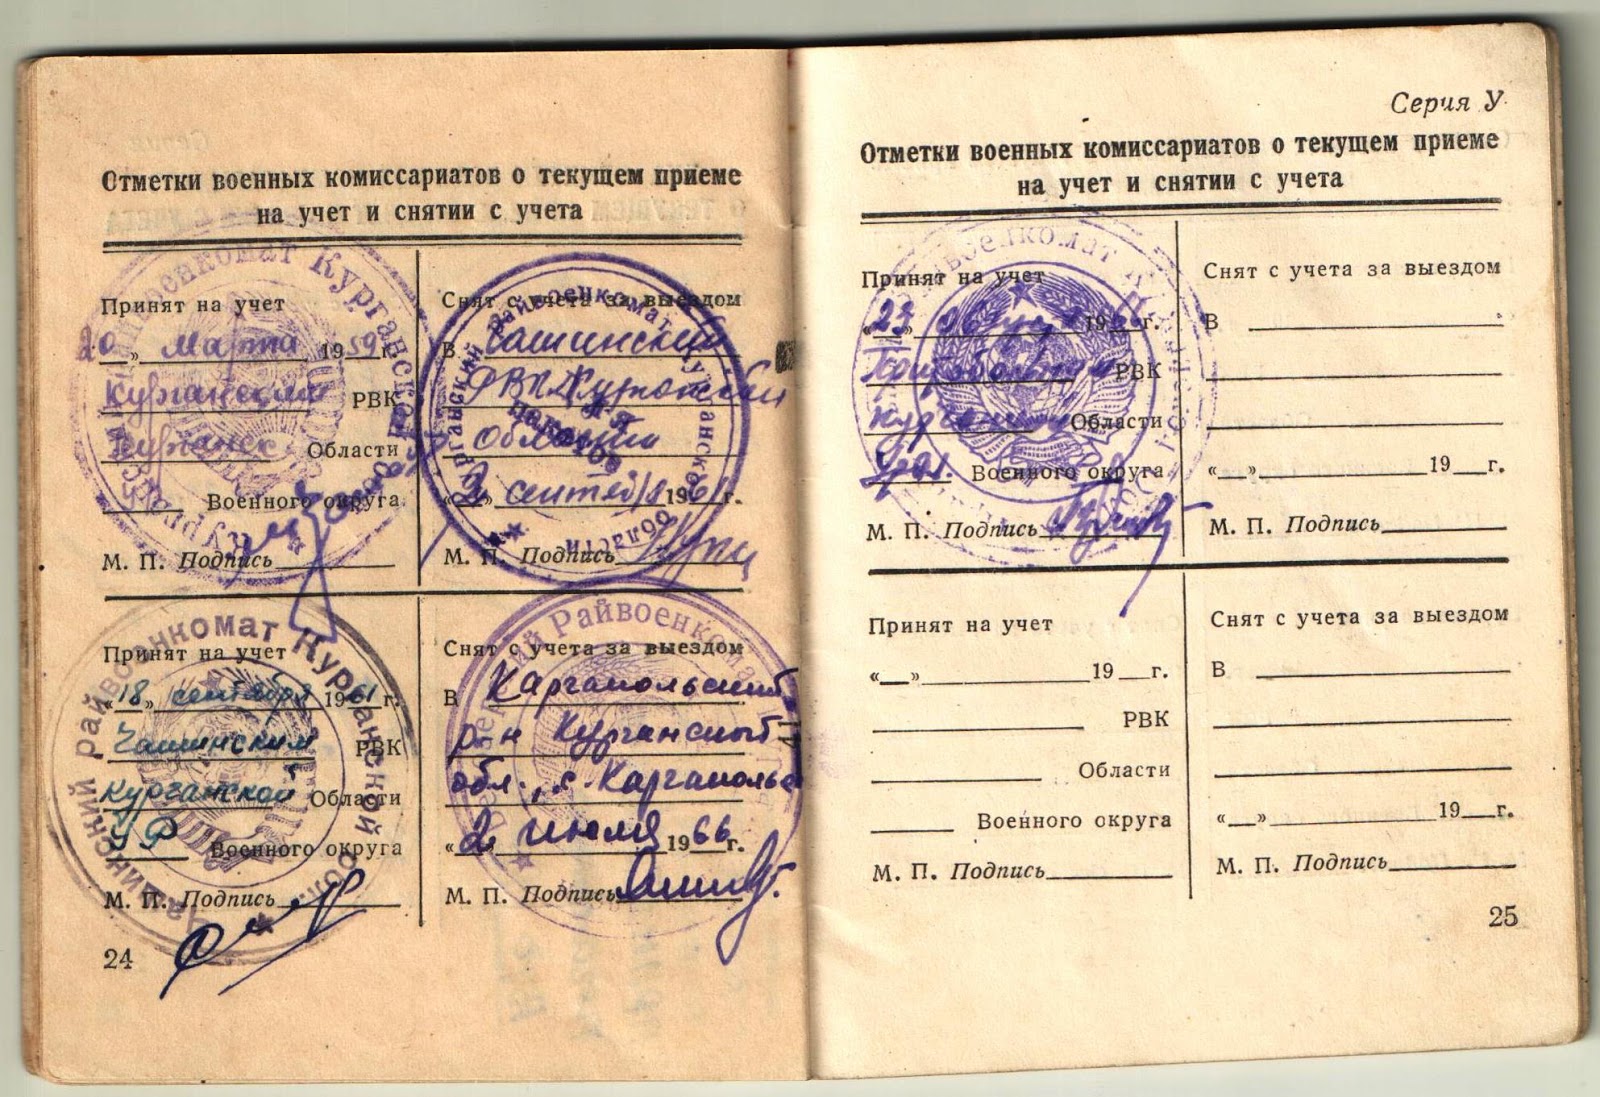 Отметки военных комиссариатов о текущем приеме
на учет и снятии с учета
Принят на учет
20 " марта 1959 г.
Курганским РВК
Курганск Области
У Военного округа
М. П. Подпись
Снят с учета за выездом
В Чашинский
РВК Курганской
области
« 2 » сентяб 1961 г.
М. П. Подпись
Райвоенкомат Курганской области
Для пакетов
Принят на учет
« 18 » сентября 1961 г.
Чашинским РВК
Курганской Области
УР Военного округа
М. П. Подпись
Чашинский райвоенкомат Курганской обл.
Снят с учета за выездом
В Каргапольский
р-н Курганской
обл., с. Каргаполье
« 2 июля 1966 г.
М. П. Подпись
Райвоенкомат
24
Серия У
Отметки военных комиссариатов о текущем приеме
на учет и снятии с учета
Принят на учет
« 23 » 1966 г.
РВК
Области
Урал. Военного округа
М. П. Подпись
Снят с учета за выездом
В
« » 19 г.
М. П. Подпись
Принят на учет
« » 19 г.
РВК
Области
Военного округа
М. П. Подпись
Снят с учета за выездом
В
« » 19 г.
М. П. Подпись
25